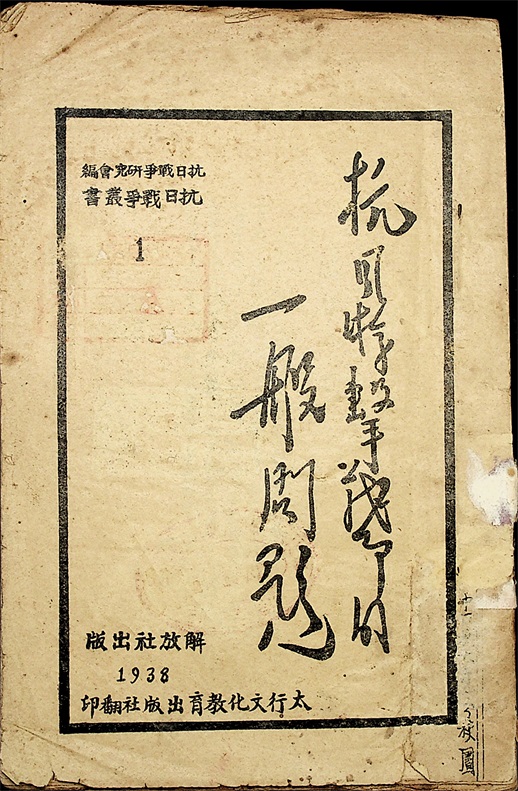 抗日游擊戰爭的
一般問題
抗日戰爭研究會編
抗日戰爭叢書
1
解放社出版
1938
太行文化教育出版社翻印